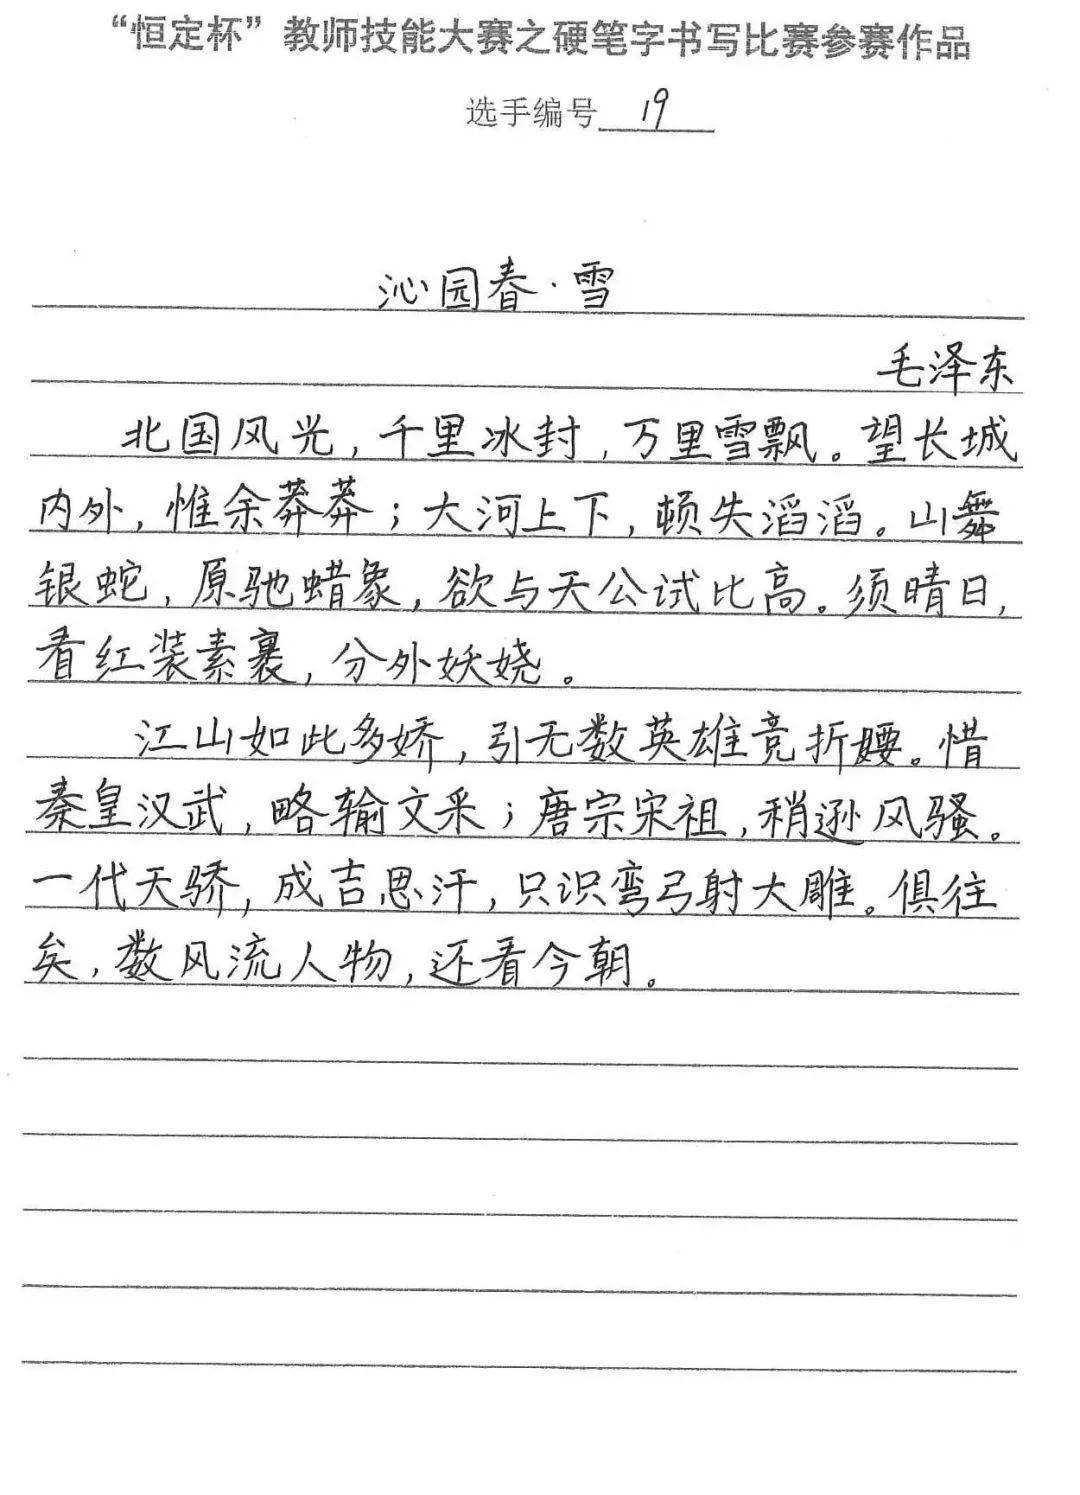 “恒定杯”教师技能大赛之硬笔字书写比赛参赛作品
选手编号 19
沁园春·雪
毛泽东
北国风光,千里冰封,万里雪飘。望长城
内外,惟余莽莽;大河上下,顿失滔滔。山舞
银蛇,原驰蜡象,欲与天公试比高。须晴日,
看红装素裹,分外妖娆。
江山如此多娇,引无数英雄竞折腰。惜
秦皇汉武,略输文采;唐宗宋祖,稍逊风骚。
一代天骄,成吉思汗,只识弯弓射大雕。俱往
矣,数风流人物,还看今朝。